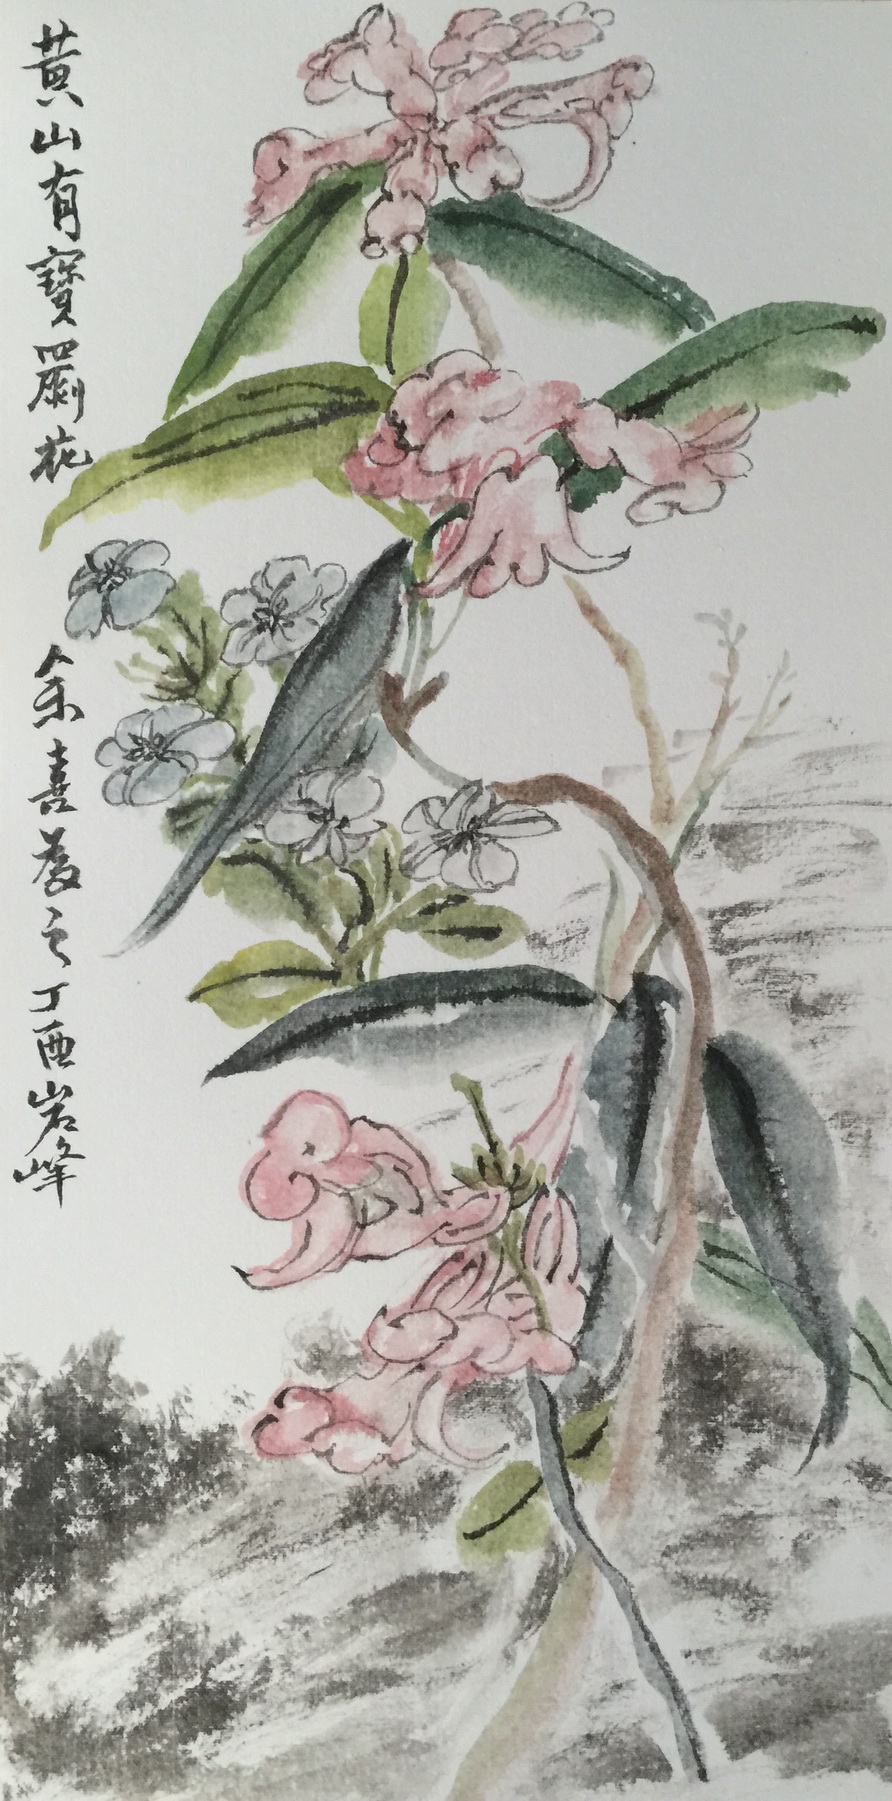 黄山有寶罽花 余喜爲之丁酉岩峰